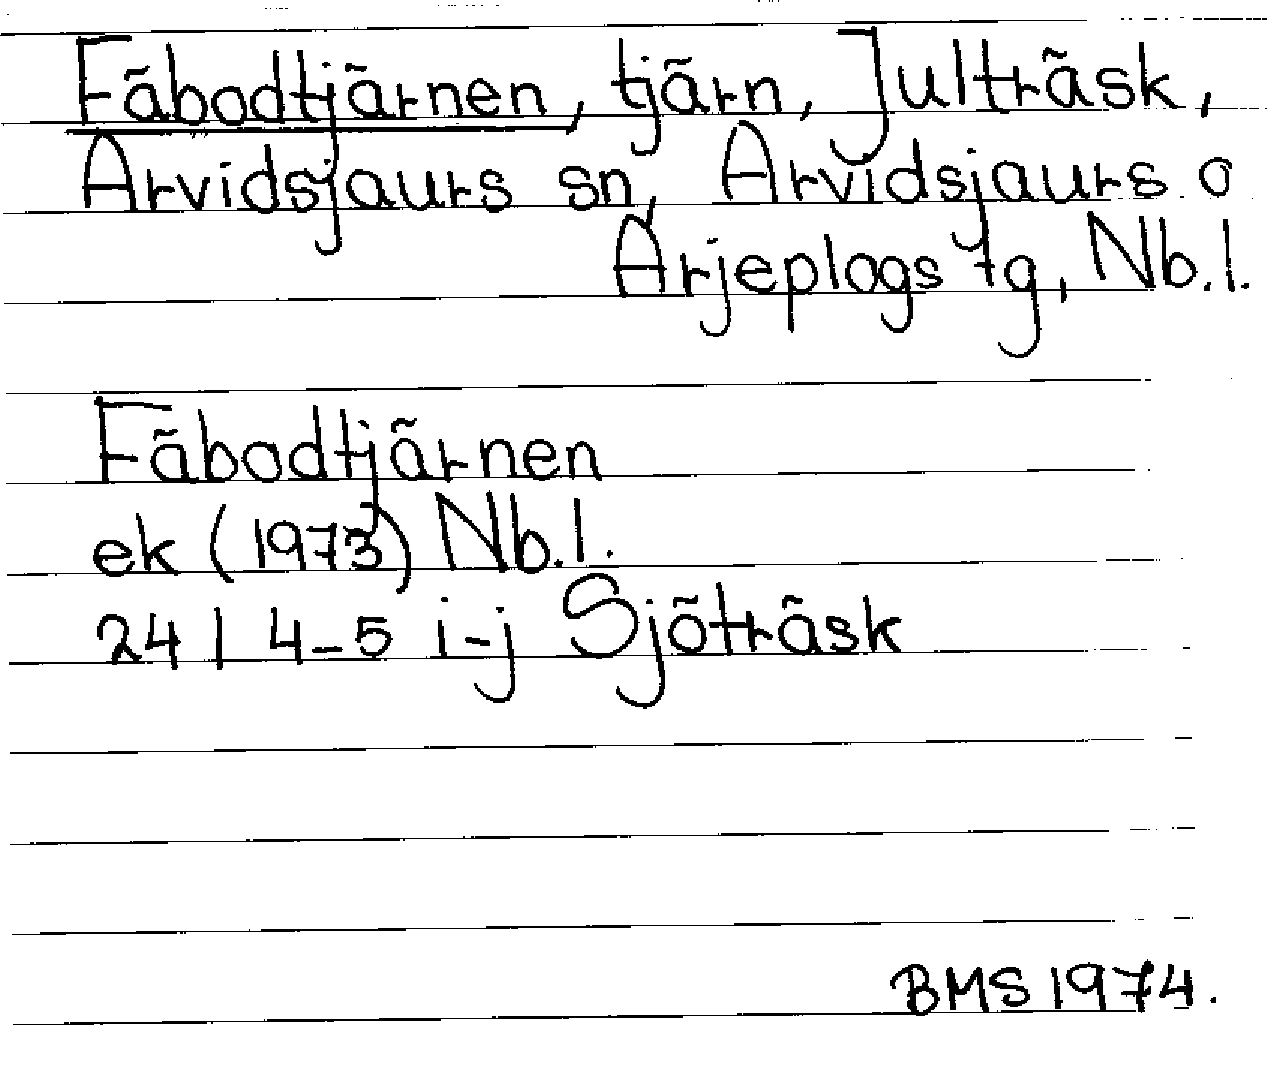 Fäbodtjärnen, tjärn, Julträsk,
Arvidsjaurs sn, Arvidsjaurs o
Arjeplogs tg, Nb.l.
Fäbodtjärnen
ek (1973) Nb.l.
24 I 4-5 i-j Sjöträsk
BMS 1974.